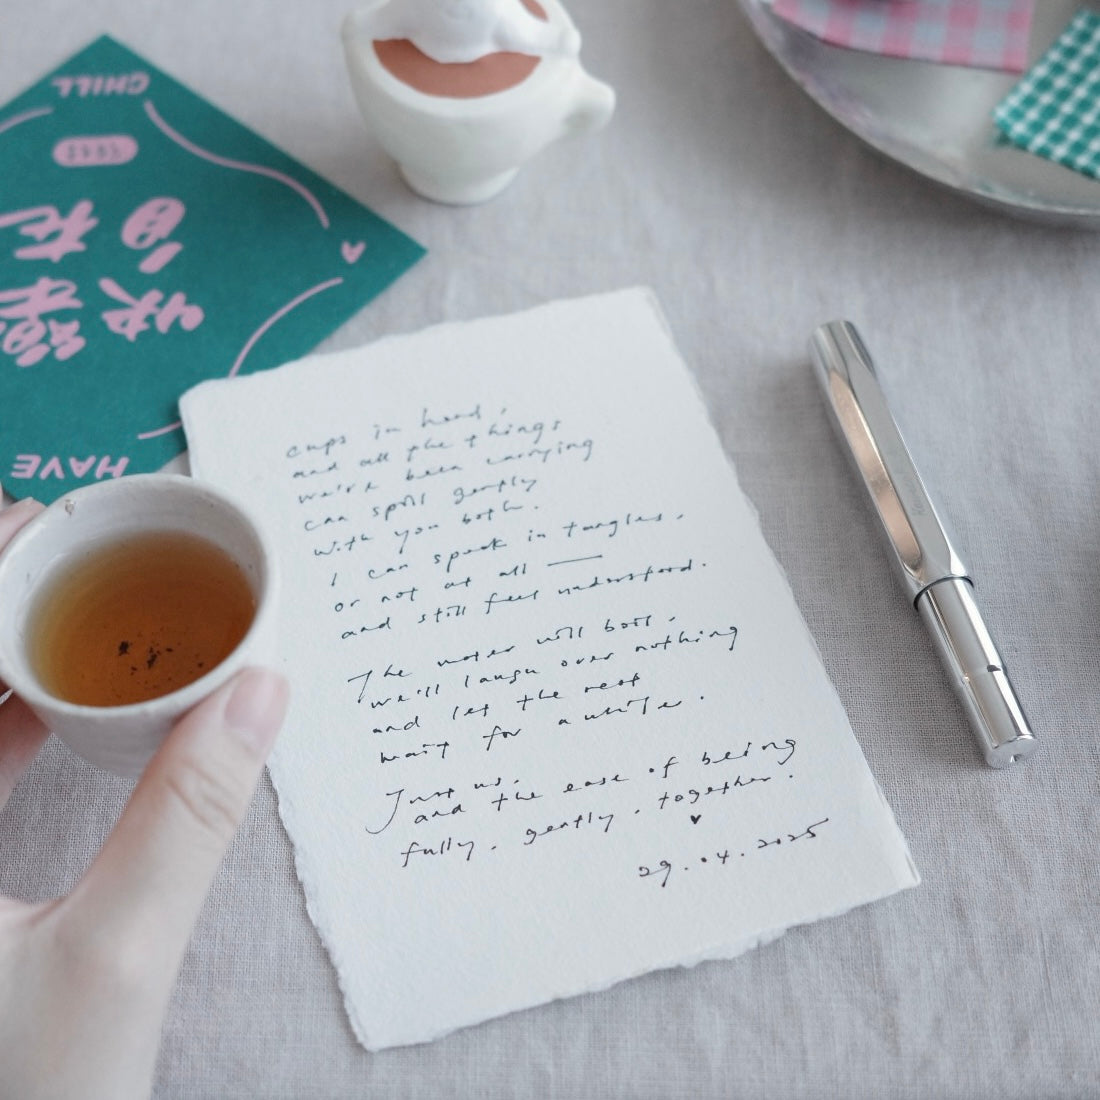 cups in hand,
and all the things
we've been carrying
can spill gently
with you both.
I can speak in tangles,
or not at all —
and still feel understood.
The water will boil,
we'll laugh over nothing
and let the rest
wait for a while.
Just us,
and the ease of being
fully, gently, together.
29.04.2025
CHILL
HAVE